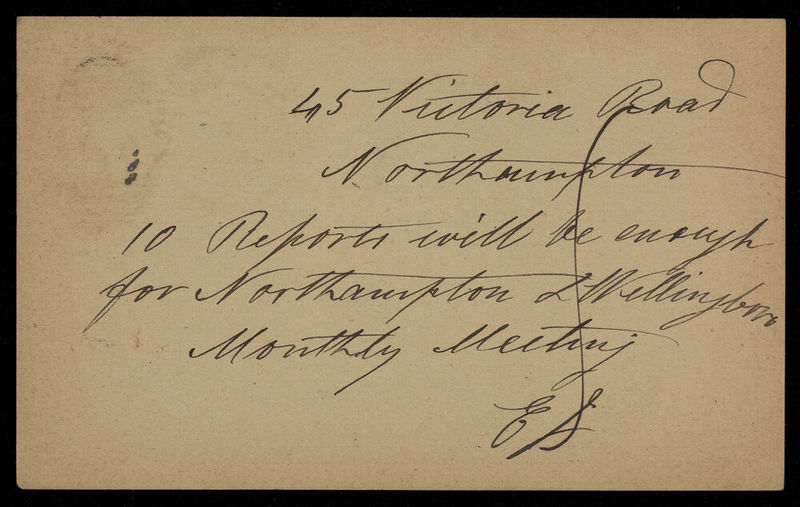 45 Victoria Road
Northampton
10 Reports will be enough
for Northampton & Wellingboro
Monthly Meeting
ES